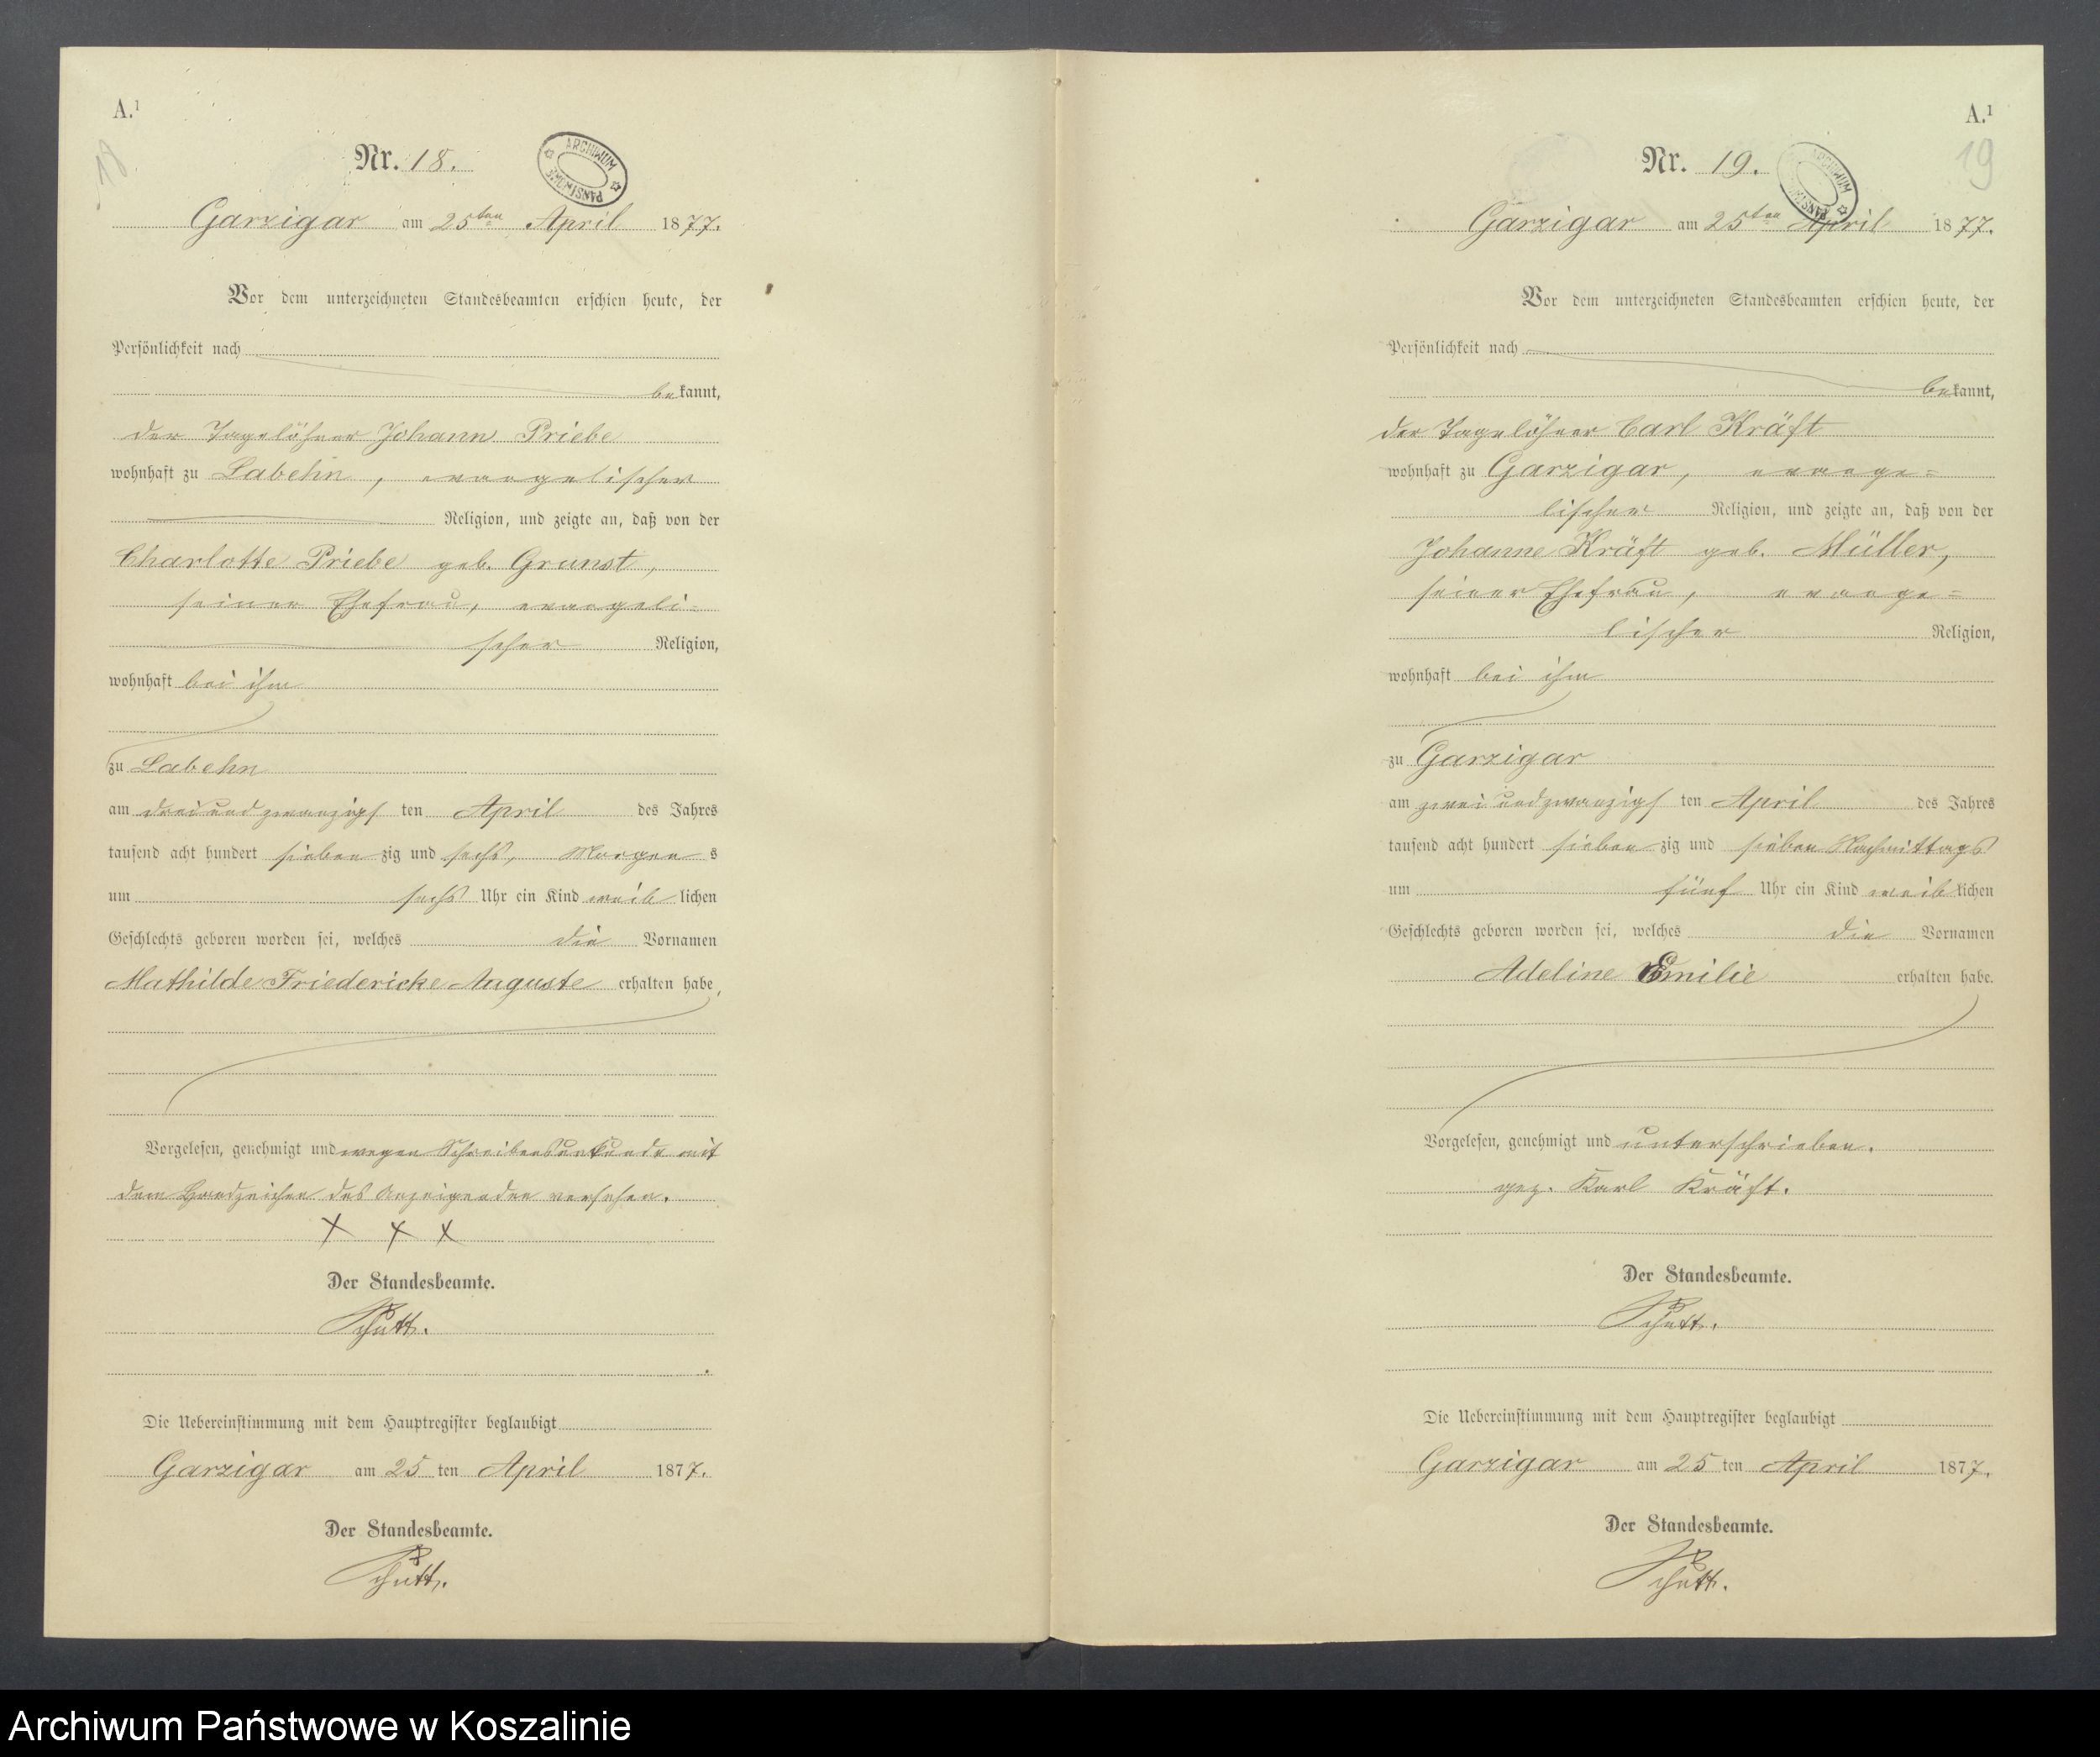 A.¹
18
Nr. 18.
ARCHIWUM PAŃSTWOWE
Garzigar am 25ten April 1877.
Vor dem unterzeichneten Standesbeamten erschien heute, der
Persönlichkeit nach
bekannt,
der Tagelöhner Johann Priebe
wohnhaft zu Labehn, evangelischer
Religion, und zeigte an, daß von der
Charlotte Priebe geb. Grunst,
seiner Ehefrau, evangeli=
scher Religion,
wohnhaft bei ihm
zu Labehn
am dreiundzwanzigsten April des Jahres
tausend acht hundert siebenzig und sechs, Morgens
um sechs Uhr ein Kind weiblichen
Geschlechts geboren worden sei, welches die Vornamen
Mathilde Friedericke Auguste erhalten habe,
Vorgelesen, genehmigt und wegen Schreibensunkunde mit
dem Handzeichen des Anzeigenden versehen.
X X X
Der Standesbeamte.
Schütt.
Die Uebereinstimmung mit dem Hauptregister beglaubigt
Garzigar am 25ten April 1877.
Der Standesbeamte.
Schütt.
A.¹
19
Nr. 19.
ARCHIWUM PAŃSTWOWE
Garzigar am 25ten April 1877.
Vor dem unterzeichneten Standesbeamten erschien heute, der
Persönlichkeit nach
bekannt,
der Tagelöhner Carl Kräft
wohnhaft zu Garzigar, evange=
lischer Religion, und zeigte an, daß von der
Johanne Kräft geb. Müller,
seiner Ehefrau, evange=
lischer Religion,
wohnhaft bei ihm
zu Garzigar
am zweiundzwanzigsten April des Jahres
tausend acht hundert siebenzig und sieben Nachmittags
um fünf Uhr ein Kind weiblichen
Geschlechts geboren worden sei, welches die Vornamen
Adeline Emilie erhalten habe.
Vorgelesen, genehmigt und unterschrieben.
gez. Karl Kräft.
Der Standesbeamte.
Schütt.
Die Uebereinstimmung mit dem Hauptregister beglaubigt
Garzigar am 25ten April 1877.
Der Standesbeamte.
Schütt.
Archiwum Państwowe w Koszalinie